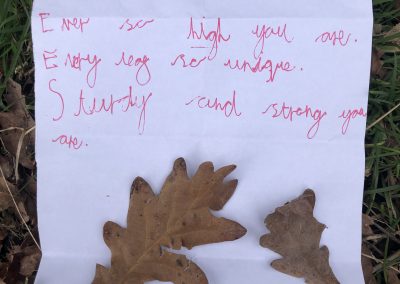 Ever so high you are.
Every leg so unique.
Sturdy and strong you
are.